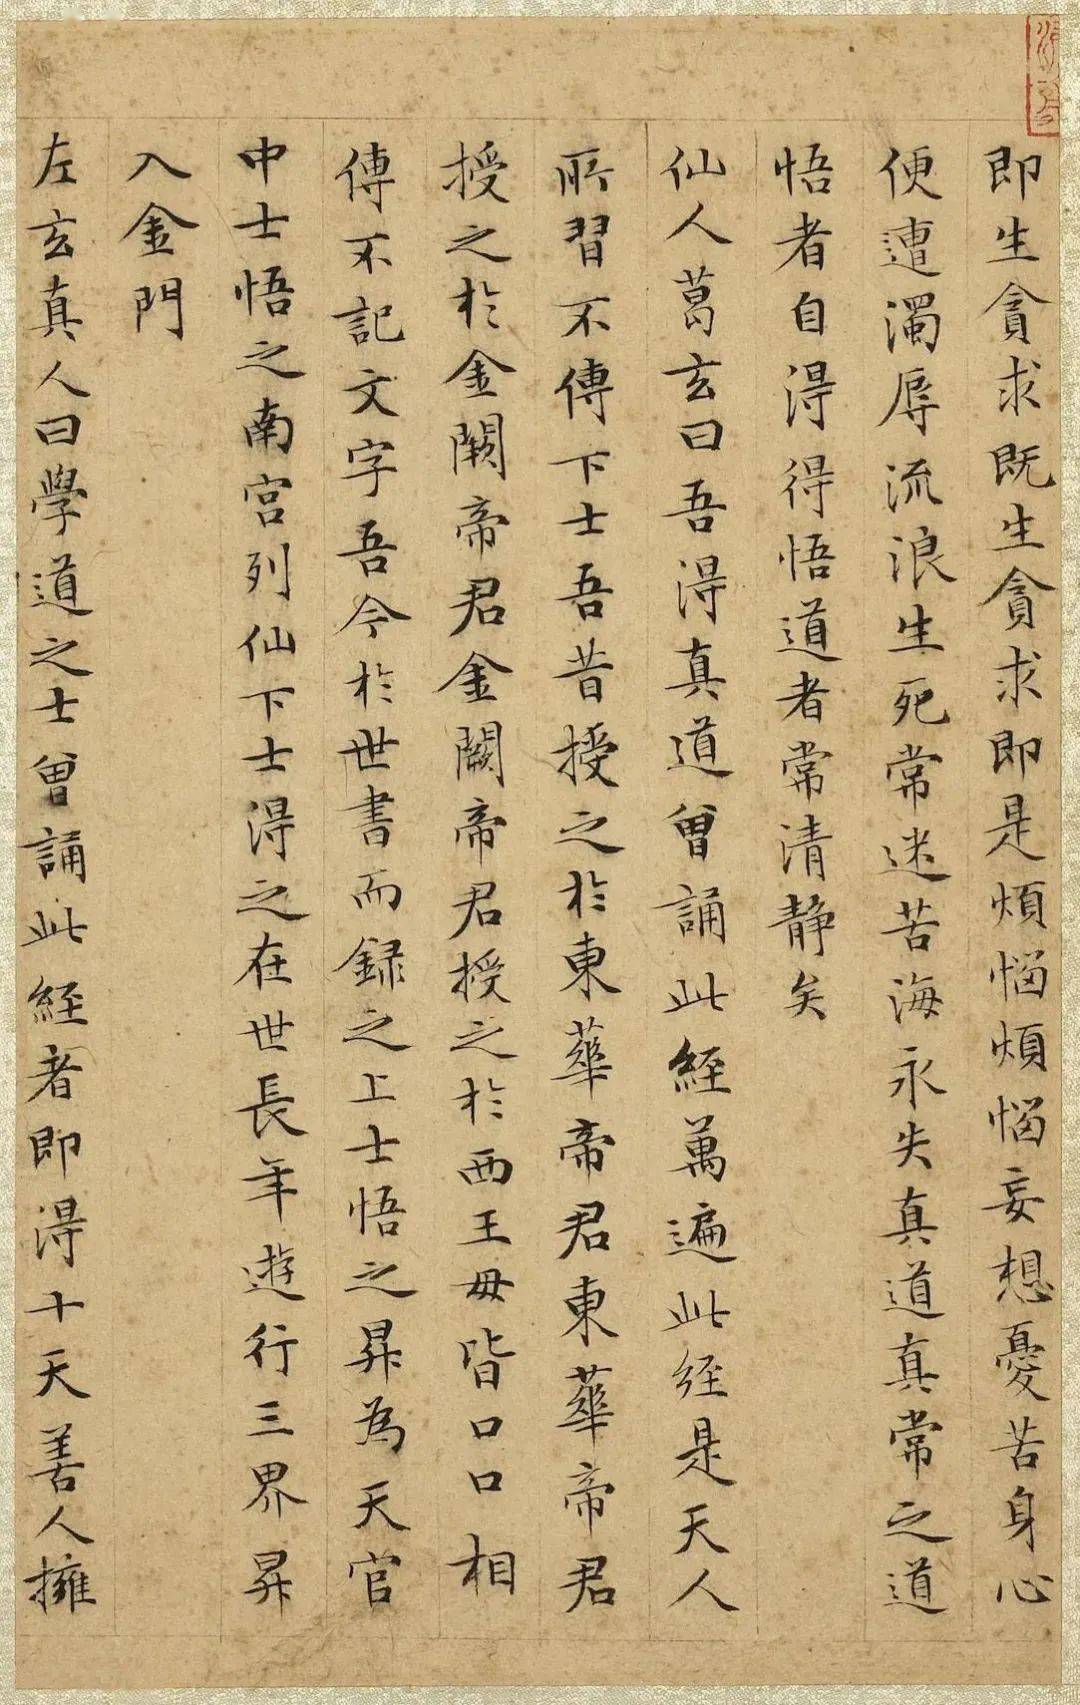 即生貪求既生貪求即是煩惱煩惱妄想憂苦身心
便遭濁辱流浪生死常迷苦海永失真道真常之道
悟者自淂得悟道者常清静矣
仙人葛玄曰吾淂真道曾誦此經萬遍此経是天人
所習不傳下士吾昔授之於東華帝君東華帝君
授之於金闕帝君金闕帝君授之於西王母皆口口相
傳不記文字吾今於世書而録之上士悟之昇為天官
中士悟之南宫列仙下士淂之在世長年遊行三界昇
入金門
左玄真人曰學道之士曾誦此経者即淂十天善人擁